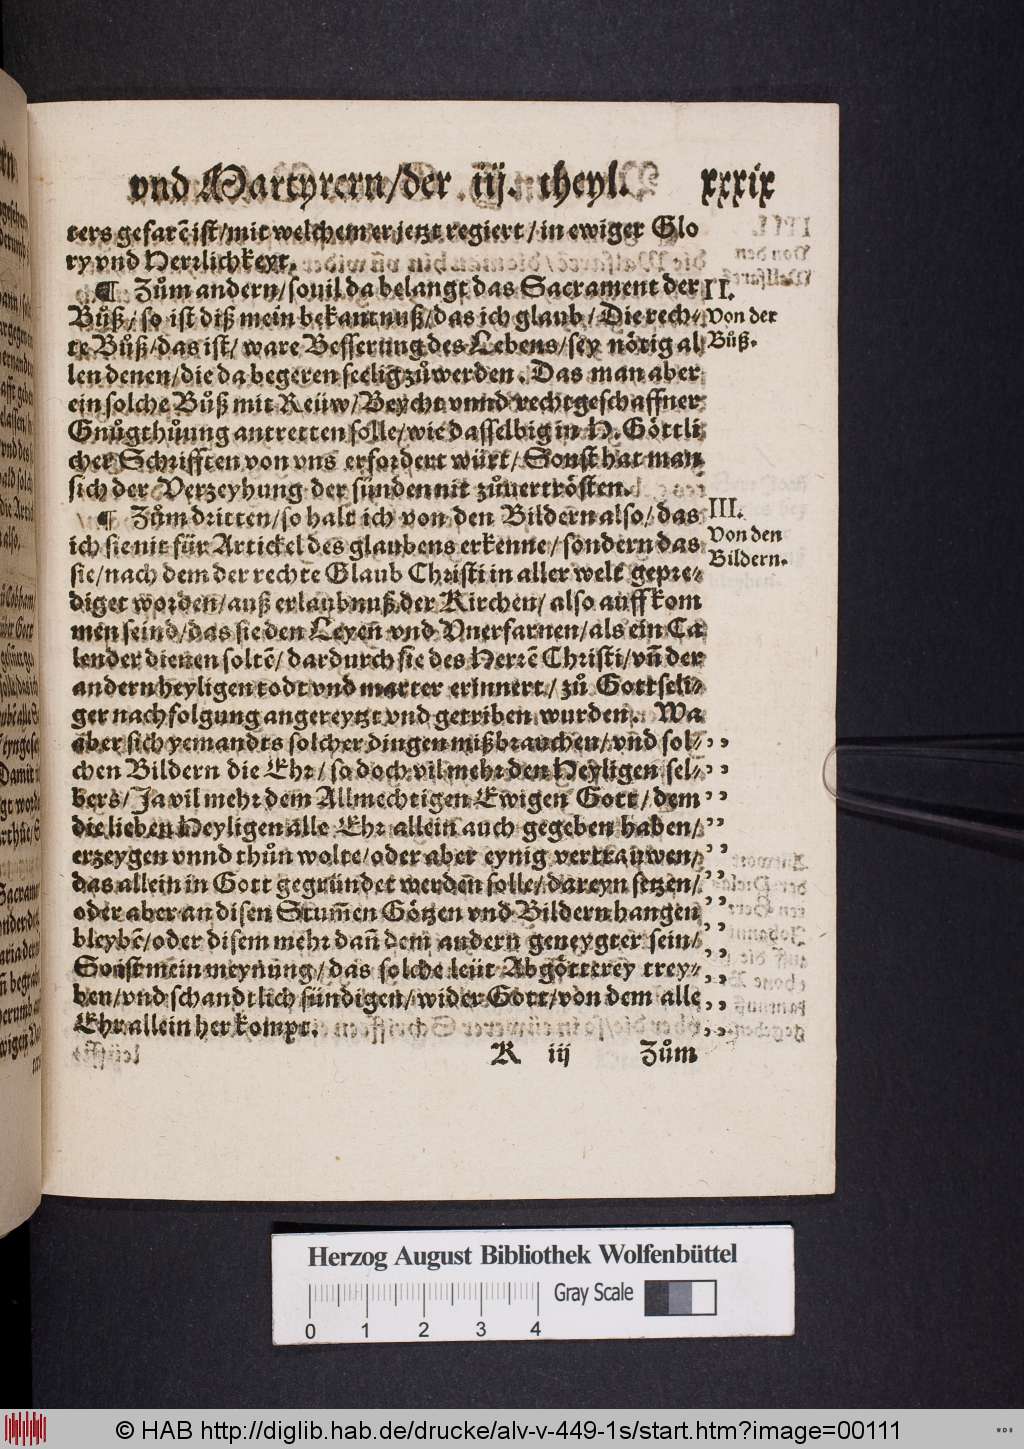 vnd Martyrern/der iij. theyl. xxxix
ters gefarē ist/mit welchem er jetzt regiert/in ewiger Glo
ry vnd Herrlichkeyt.
¶ Zům andern/souil da belangt das Sacrament der
Bůß/so ist diß mein bekantnuß/das ich glaub/Die rech-
te Bůß/das ist/ware Besserung des Lebens/sey nötig al
len denen/die da begeren seelig zůwerden. Das man aber
ein solche Bůß mit Reüw/Beycht vnnd rechtgeschaffner
Gnůgthůung antretten solle/wie dasselbig in H. Göttli
cher Schrifften von vns erfordert würt/Sonst hat man
sich der Verzeyhung der sünden nit zůuertrösten.
II.
Von der
Bůß.
¶ Zům dritten/so halt ich von den Bildern also/das
ich sie nit für Artickel des glaubens erkenne/sondern das
sie/nach dem der rechte Glaub Christi in aller welt gepre-
diget worden/auß erlaubnuß der Kirchen/also auff kom
men seind/das sie den Leyen̄ vnd Vnerfarnen/als ein Ca
lender dienen soltē/dardurch sie des Herrē Christi/vn̄ der
andern heyligen todt vnd marter erinnert/zů Gottseli-
ger nachfolgung angereytzt vnd getriben wurden. Wa
aber sich yemandts solcher dingen mißbrauchen/vnd sol-
chen Bildern die Ehr/so doch vil mehr den Heyligen sel-
bers/Ja vil mehr dem Allmechtigen Ewigen Gott/dem
die lieben Heyligen alle Ehr allein auch gegeben haben/
erzeygen vnnd thůn wolte/oder aber eynig vertrauwen/
das allein in Gott gegründet werden̄ solle/dareyn setzen/
oder aber an disen Stum̄en Götzen vnd Bildern hangen
bleybē/oder disem mehr dan̄ dem andern geneygter sein/
Sonst mein meynung/das solche leüt Abgötterey trey-
ben/vnd schandtlich sündigen/wider Gott/von dem alle
Ehr allein her kompt.
III.
Von den
Bildern.
K iij Zům
Herzog August Bibliothek Wolfenbüttel
Gray Scale
0 1 2 3 4
© HAB http://diglib.hab.de/drucke/alv-v-449-1s/start.htm?image=00111